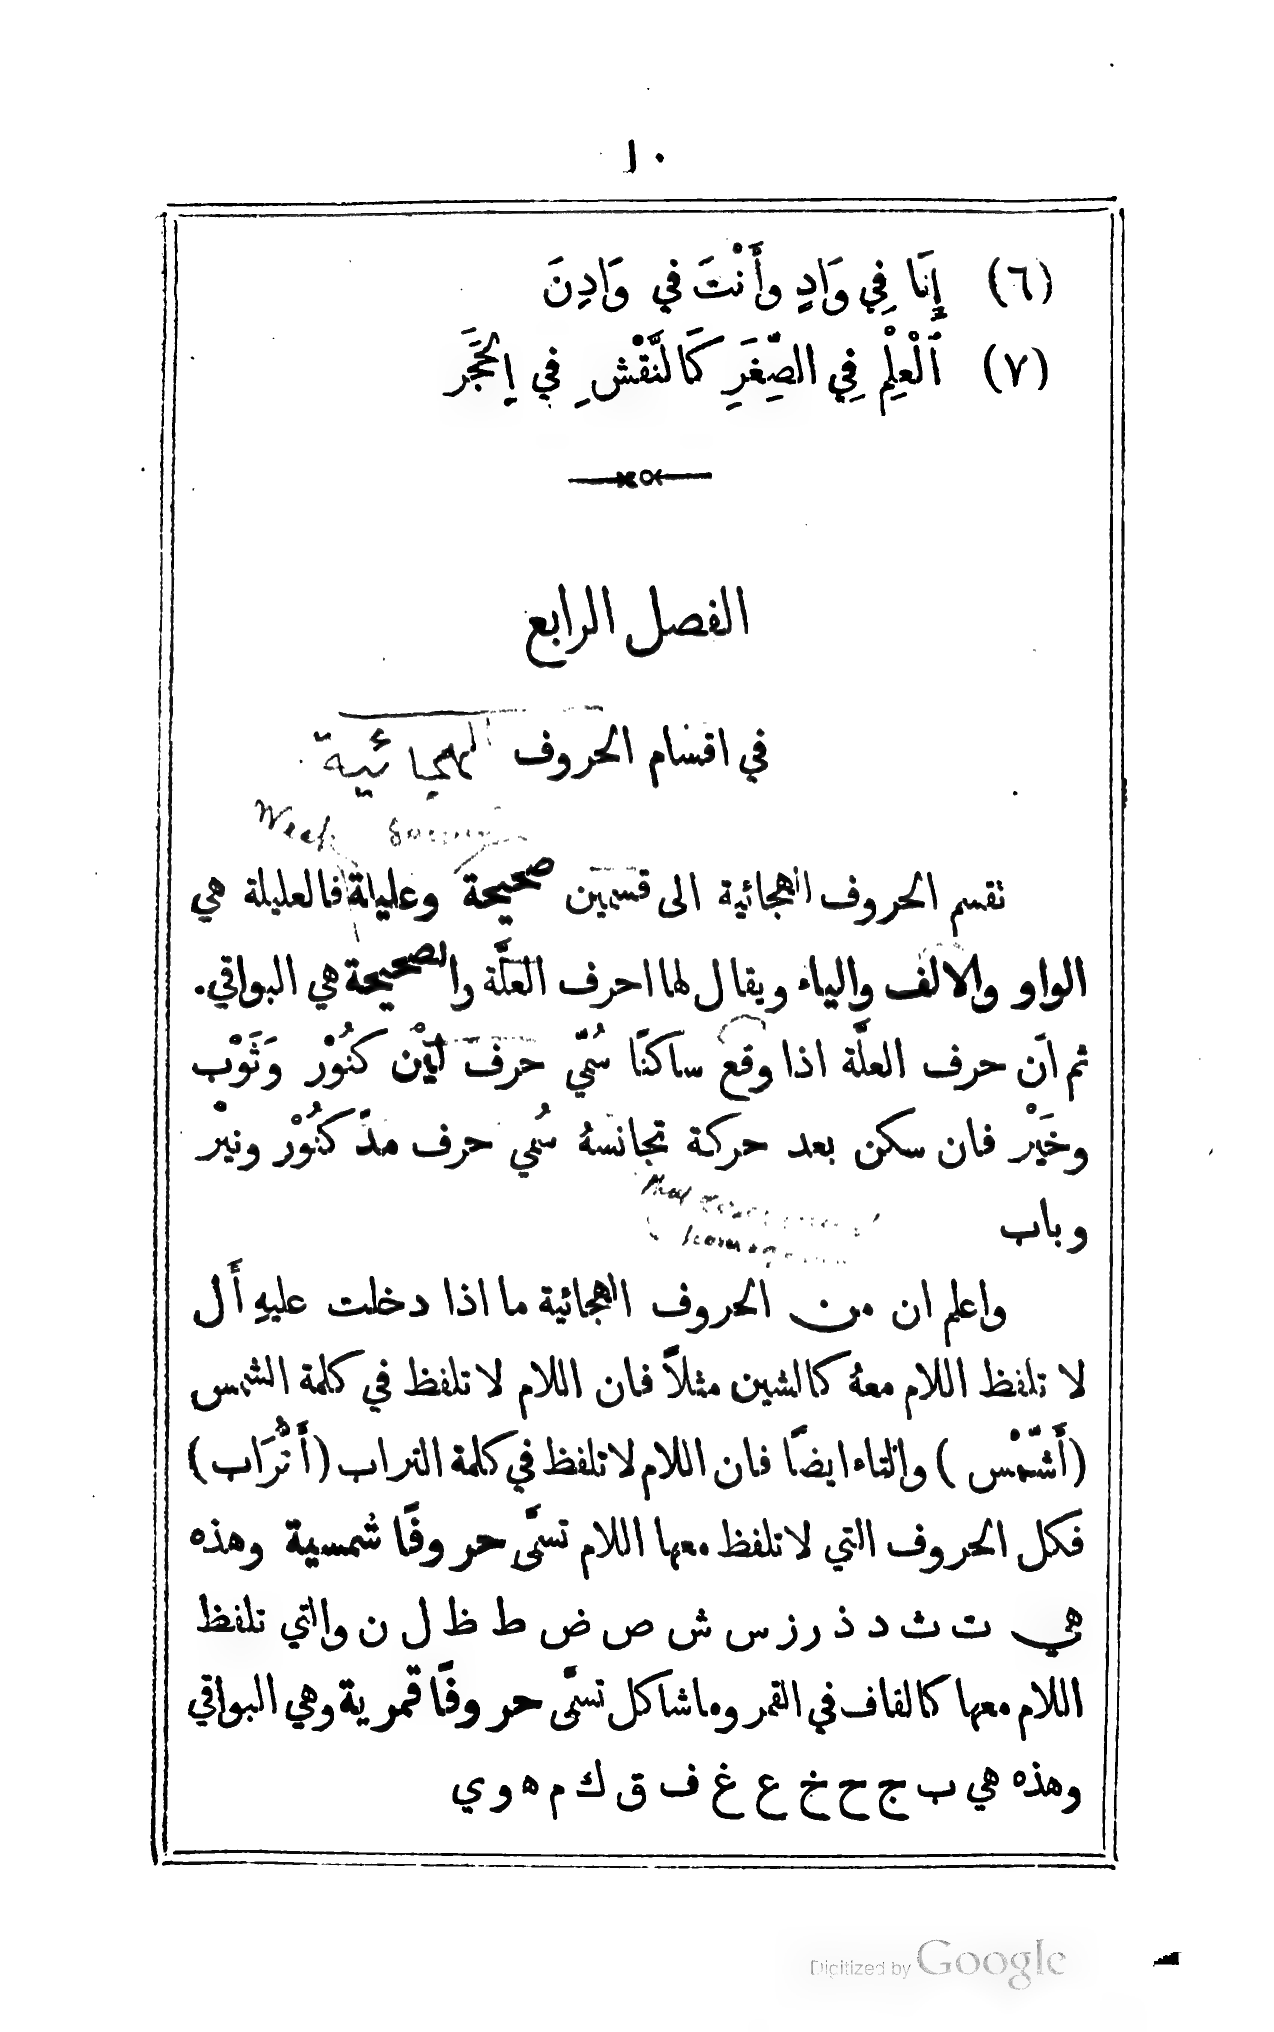 ١٠
(٦) إِنَا فِي وَادٍ وأَنْتَ في وَادِنَ
(٧) ٱلْعِلْمِ فِي الصِّغَرِ كَالنَّقْشِ في الحَجَر
الفصل الرابع
في اقسام الحروف الهجائية
Weak Sound
تقسم الحروف الهجائية الى قسمين صحيحة وعليلة فالعليلة هي
الواو والالف والياء ويقال لها احرف العلَّة والصحيحة هي البواقي.
ثم انّ حرف العلَّة اذا وقع ساكنًا سُمِّي حرف لَيْن كنُوْر وَثَوْب
وخَيْر فان سكن بعد حركة تجانسهُ سُمي حرف مدّ كنُوْر ونيْر
وباب
واعلم ان من الحروف الهجائية ما اذا دخلت عليهِ أَل
لا تلفظ اللام معهُ كالشين مثلاً فان اللام لا تلفظ في كلمة الشمس
(أَشَّمْس) والتاء ايضًا فان اللام لا تلفظ في كلمة التراب (أَتُّرَاب)
فكل الحروف التي لا تلفظ معها اللام تسمَّى حروفًا شمسية وهذه
هي ت ث د ذ ر ز س ش ص ض ط ظ ل ن والتي تلفظ
اللام معها كالقاف في القمر وما شاكل تسمَّى حروفًا قمرية وهي البواقي
وهذه هي ب ج ح خ ع غ ف ق ك م ه و ي
Digitized by Google